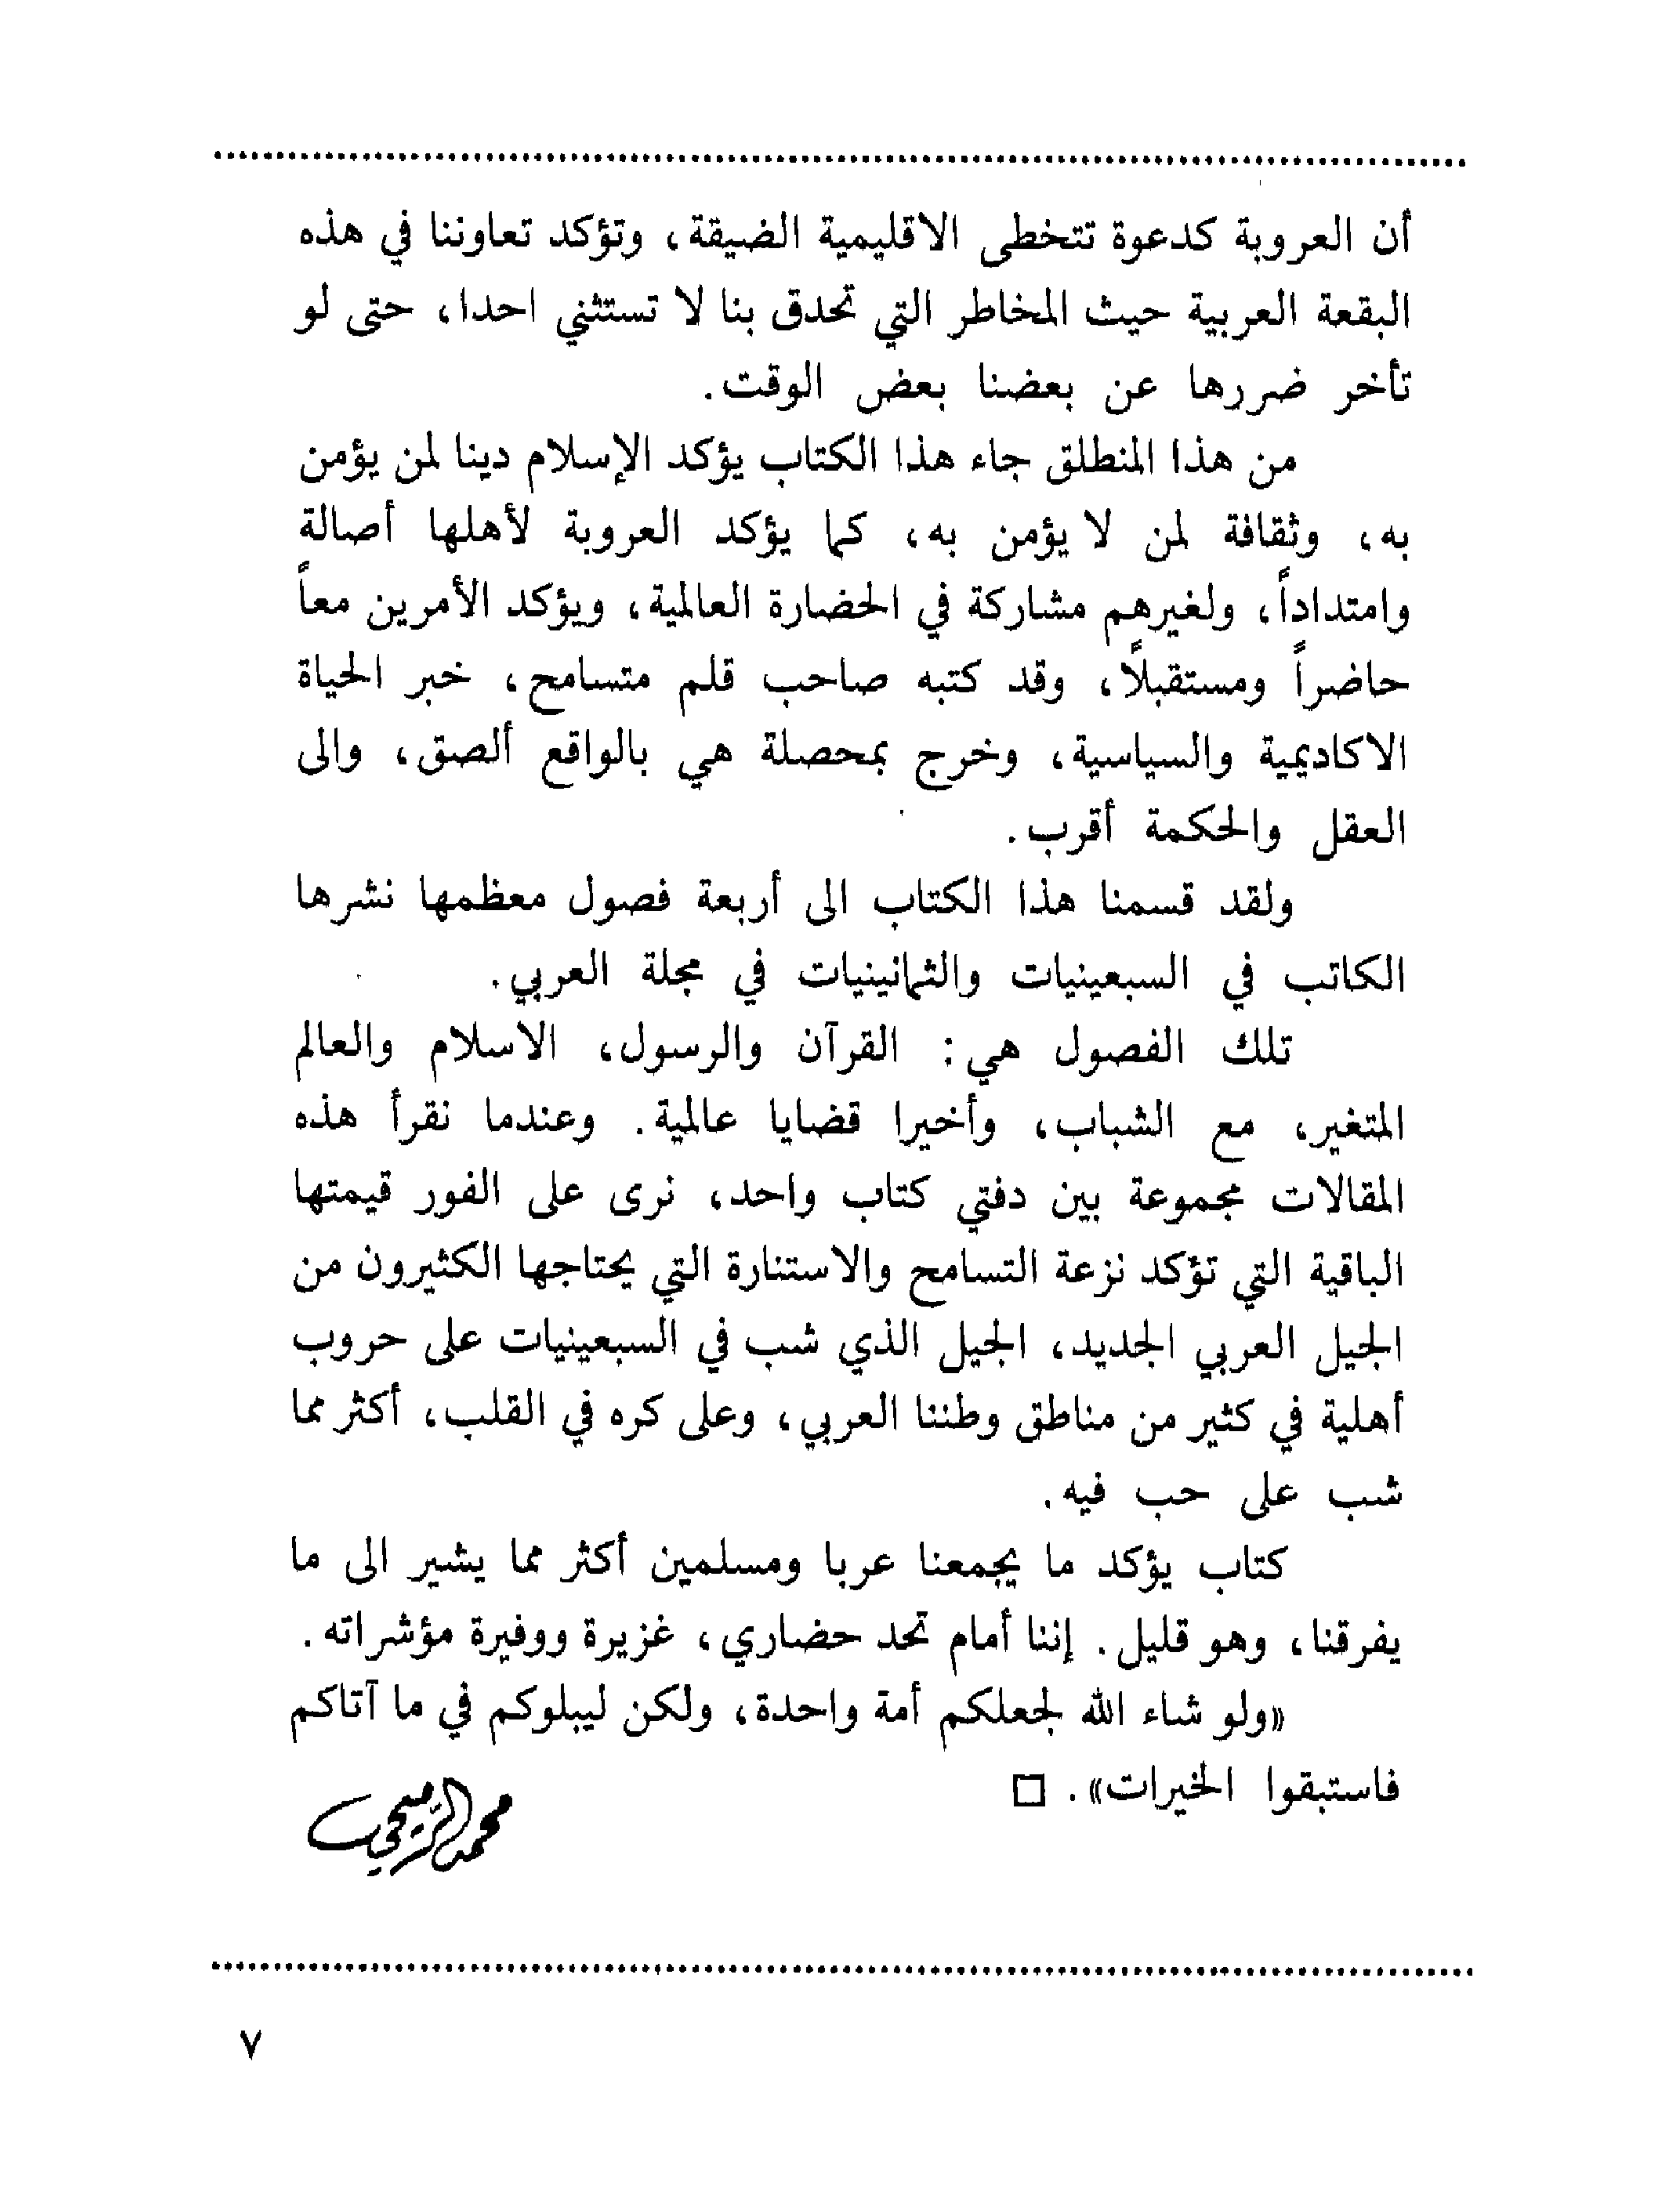 أن العروبة كدعوة تتخطى الاقليمية الضيقة، وتؤكد تعاوننا في هذه
البقعة العربية حيث المخاطر التي تحدق بنا لا تستثني احدا، حتى لو
تأخر ضررها عن بعضنا بعض الوقت.
من هذا المنطلق جاء هذا الكتاب يؤكد الإسلام دينا لمن يؤمن
به، وثقافة لمن لا يؤمن به، كما يؤكد العروبة لأهلها أصالة
وامتداداً، ولغيرهم مشاركة في الحضارة العالمية، ويؤكد الأمرين معاً
حاضراً ومستقبلاً، وقد كتبه صاحب قلم متسامح، خبر الحياة
الاكاديمية والسياسية، وخرج بمحصلة هي بالواقع ألصق، والى
العقل والحكمة أقرب.
ولقد قسمنا هذا الكتاب الى أربعة فصول معظمها نشرها
الكاتب في السبعينيات والثمانينيات في مجلة العربي.
تلك الفصول هي: القرآن والرسول، الاسلام والعالم
المتغير، مع الشباب، وأخيرا قضايا عالمية. وعندما نقرأ هذه
المقالات مجموعة بين دفتي كتاب واحد، نرى على الفور قيمتها
الباقية التي تؤكد نزعة التسامح والاستنارة التي يحتاجها الكثيرون من
الجيل العربي الجديد، الجيل الذي شب في السبعينيات على حروب
أهلية في كثير من مناطق وطننا العربي، وعلى كره في القلب، أكثر مما
شب على حب فيه.
كتاب يؤكد ما يجمعنا عربا ومسلمين أكثر مما يشير الى ما
يفرقنا، وهو قليل. إننا أمام تحد حضاري، غزيرة ووفيرة مؤشراته.
«ولو شاء الله لجعلكم أمة واحدة، ولكن ليبلوكم في ما آتاكم
فاستبقوا الخيرات». □
محمد الرميحي
٧